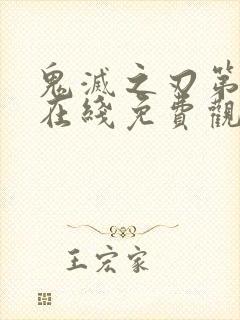 鬼滅之刃第
在綫免費觀
王宏家